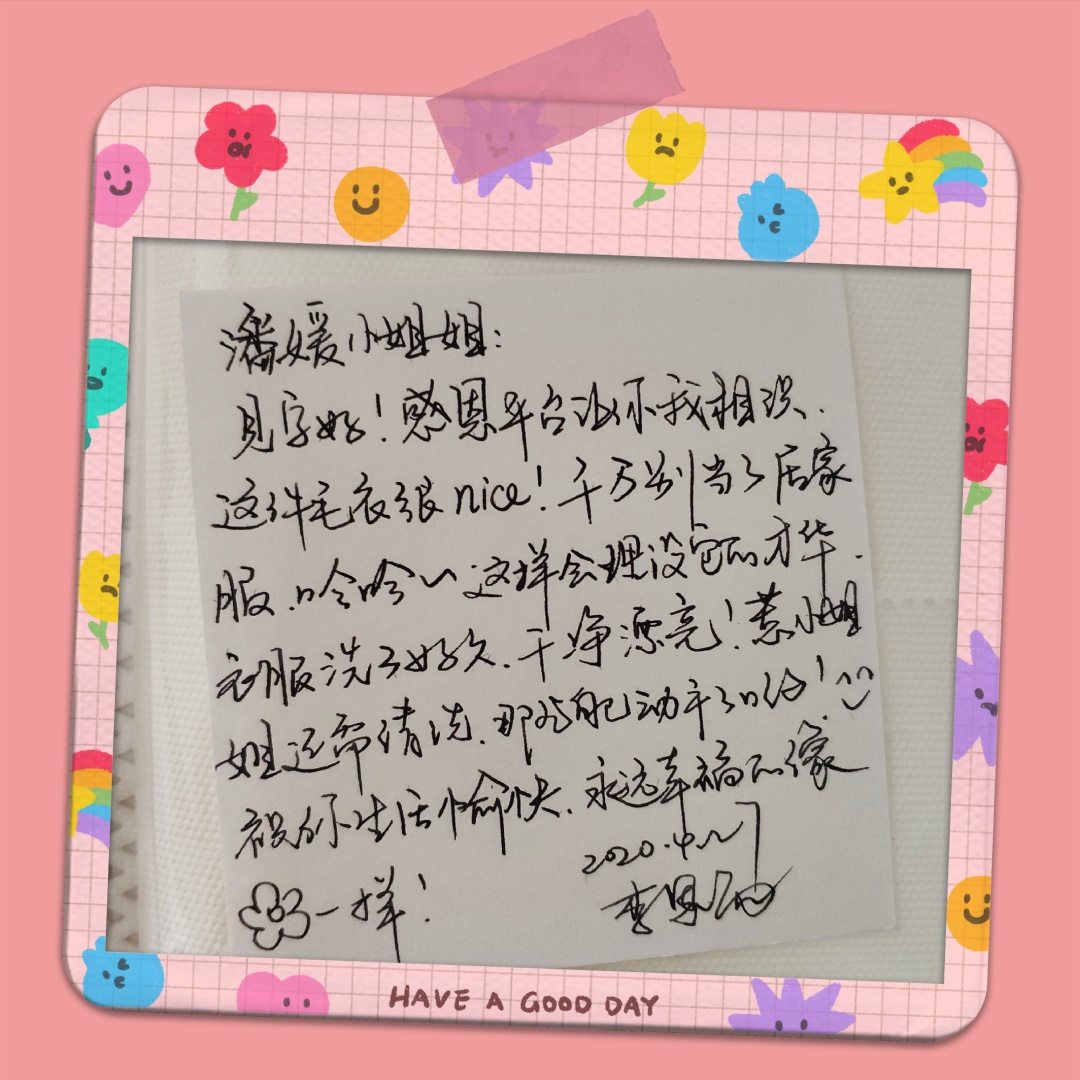 潘媛小姐姐:
见字好!感恩平台让你我相识.
这件毛衣很nice!千万别当了居家
服.哈哈~这样会埋没它的才华.
衣服洗了好久.干净漂亮!若小姐
姐还需清洗.那就自己动手了哈!
祝你生活愉快.永远幸福的像
一样!
2020.4.27
HAVE A GOOD DAY